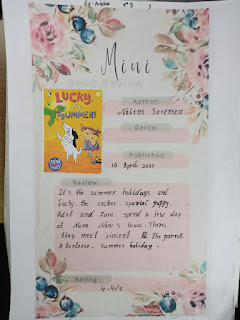 by: Anaya
Mini
BOOK REVIEW
LUCKY,
IT'S
SUMMER!
Author:
Nalini Sorensen
Genre:
Published:
18 April 2020
Review:
It's the summer holidays and
Lucky, the cocker spaniel puppy,
Adit and Zara spend a few day
at Nana Nani's house. There,
they meet vincent the parrot.
A tortoise. summer holiday.
Rating:
4.4/5